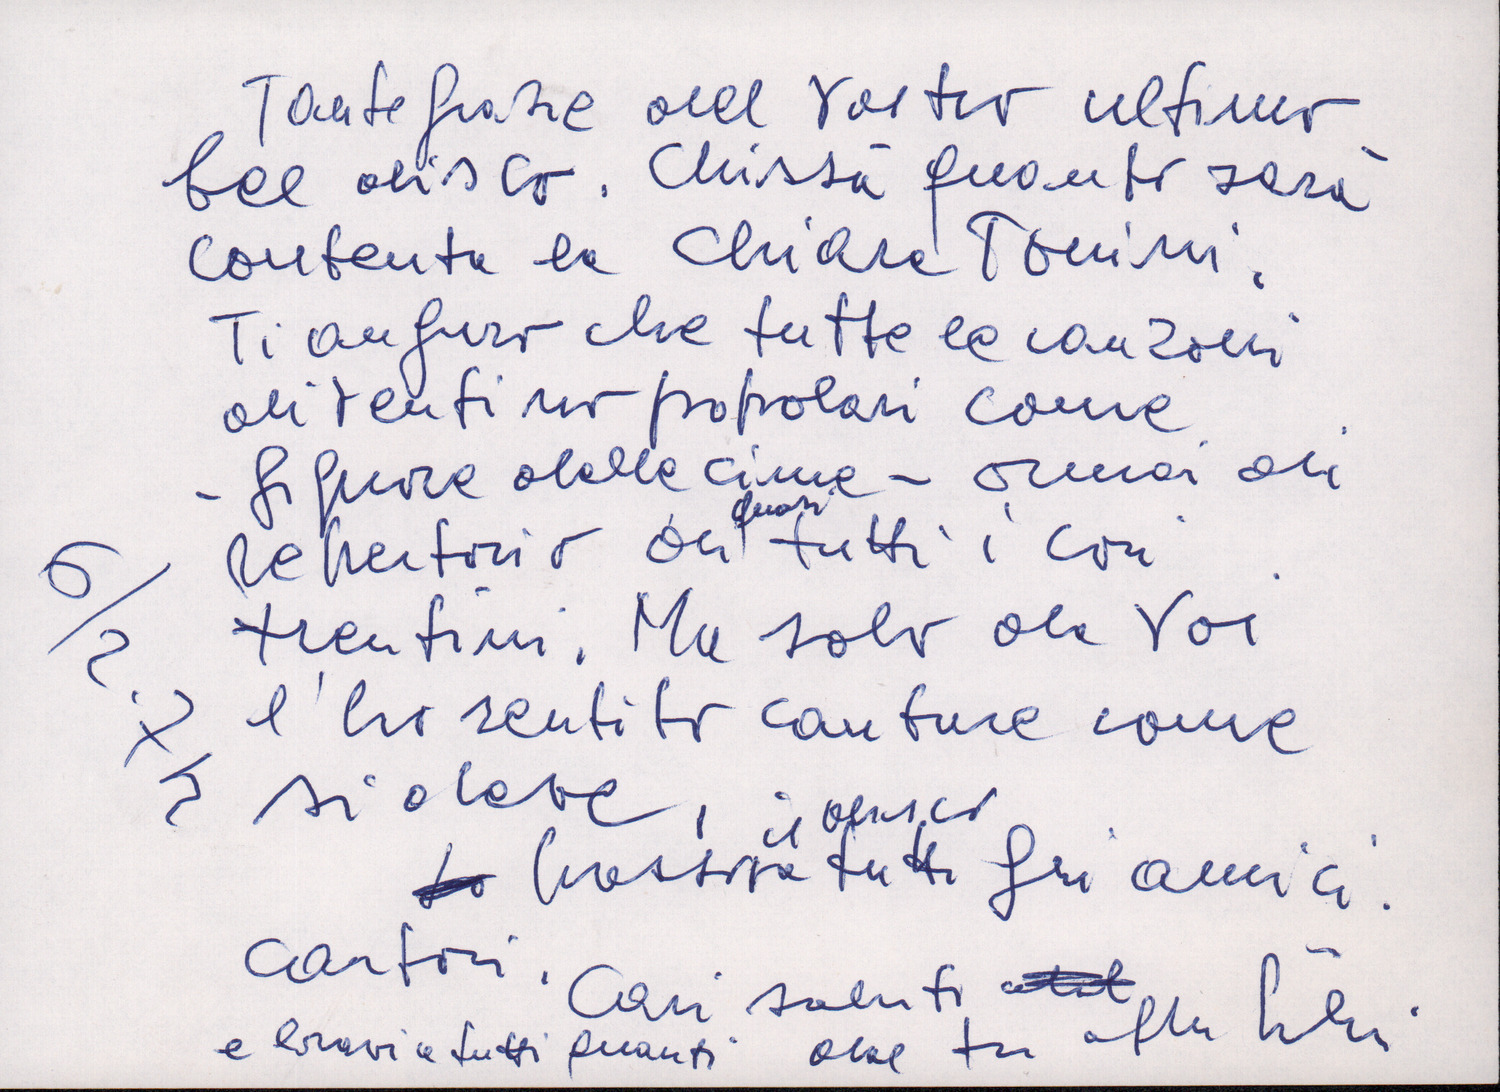 Tante grazie del Vostro ultimo
bel disco. Chissà quanto sarà
contenta la Chiara Tonini.
Ti auguro che tutte le canzoni
diventino popolari come
- Signore delle cime - ormai di
repertorio di quasi tutti i cori
trentini. Ma solo da Voi
l'ho sentito cantare come
si deve,
il disco
tutti gli amici.
cantori.
Cari saluti
e bravi a tutti quanti dal tu
6/2